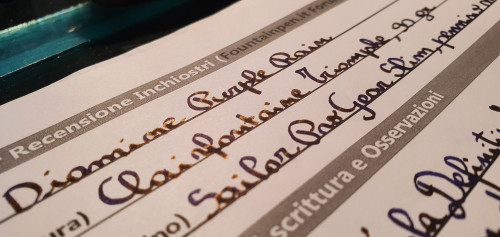 Recensione Inchiostri (Fountainpen.it Forum
Diamine Purple Rain
Clairefontaine Triomphe, 90 gr
ura)
Sailor ProGear Slim, pennino
ino)
scrittura e Osservazioni
la Definit